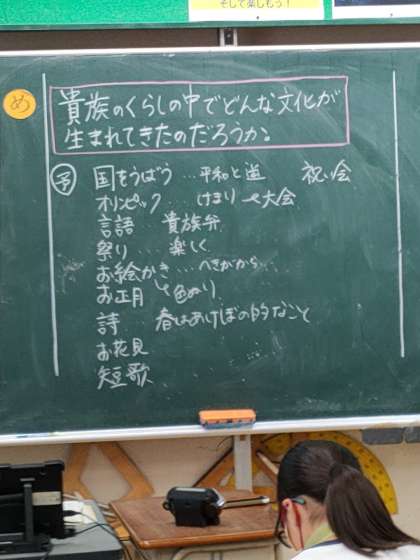 そして楽しもう!
め
貴族のくらしの中でどんな文化が
生まれてきたのだろうか。
予 国をうばう…平和と逆 祝い会
オリンピック…けまり 大会
言語 貴族弁
祭り… 楽しく
お絵かき…へきががら
お正月 色ぬり
詩 春はあけぼの的なこと
お花見
短歌